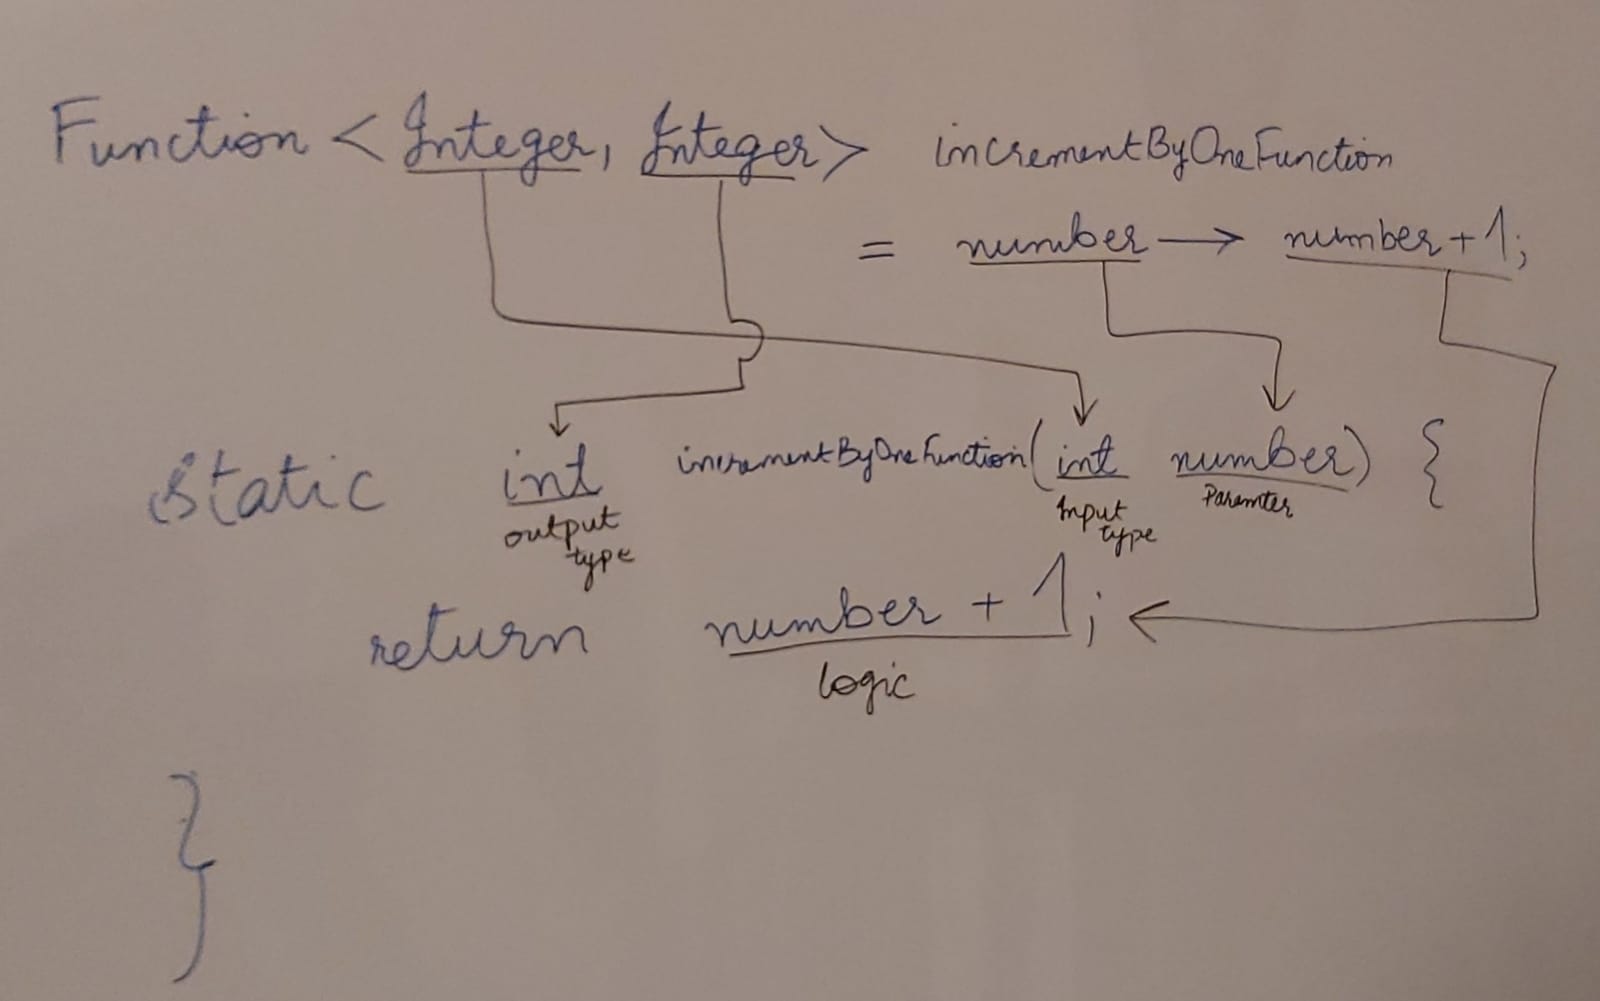 Function <Integer, Integer> incrementByOneFunction
= number → number + 1;
static int incrementByOneFunction(int number) {
output type
Input type
Paramter
return number + 1;
logic
}